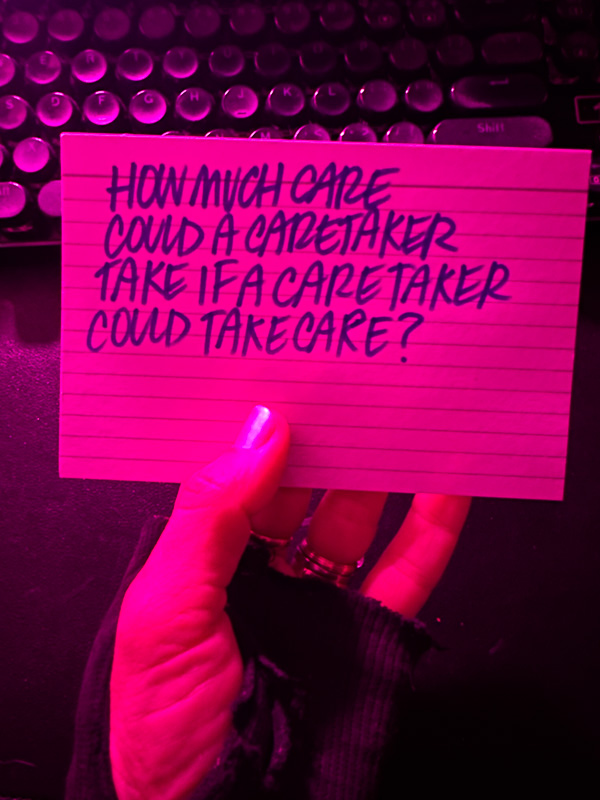 E R T Y
S D F G H J K L
Shift
HOW MUCH CARE
COULD A CARETAKER
TAKE IF A CARETAKER
COULD TAKE CARE?